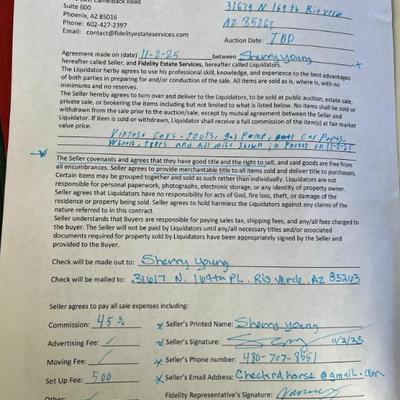 Camelback Road
Suite 600
Phoenix, AZ 85016
Phone: 602-427-2397
Email: contact@fidelityestateservices.com
31679 N 169th Rio Verde
AZ 85263
Auction Date: TBD
Agreement made on (date) 11-2-25 between Sherry Young
hereafter called Seller, and Fidelity Estate Services, hereafter called Liquidators.
The Liquidator herby agrees to use his professional skill, knowledge, and experience to the best advantages
of both parties in preparing for and/or conduction of the sale. All items are sold as is, where is, with no
minimums and no reserves.
The Seller hereby agrees to turn over and deliver to the Liquidators, to be sold at public auction, estate sale,
private sale, or brokering the items including but not limited to what is listed below. No items shall be sold or
withdrawn from the sale prior to the auction/sale, except by mutual agreement between the Seller and
Liquidator. If Item is sold or withdrawn, Liquidator shall receive a full commission of the item(s) at fair market
value price.
Vintage Cars, Tools, gas Pump, Car Parts,
and all misc Shown in Photos on 11-2-25
The Seller covenants and agrees that they have good title and the right to sell, and said goods are free from
all encumbrances. Seller agrees to provide merchantable title to all items sold and deliver title to purchasers.
Certain items may be grouped together and sold as such rather than individually. Liquidators are not
responsible for personal paperwork, photographs, electronic storage, or any identity of property owner.
Seller agrees that Liquidators have no responsibility for acts of God, fire loss, theft, or damage of the
residence or property being sold. Seller agrees to hold harmless the Liquidators against any claims of the
nature referred to in this contract.
Seller understands that Buyers are responsible for paying sales tax, shipping fees, and any/all fees charged to
the buyer. The Seller will not be paid by Liquidators until any/all necessary titles and/or associated
documents required for property sold by Liquidators have been appropriately signed by the Seller and
provided to the Buyer.
Check will be made out to: Sherry Young
Check will be mailed to: 31617 N. 169th PL. Rio Verde, AZ 85263
Seller agrees to pay all sale expenses including:
Commission: 45%
Seller's Printed Name: Sherry Young
Advertising Fee:
Seller's Signature: 11/2/25
Moving Fee:
Seller's Phone number: 480-707-8551
Set Up Fee: 500
Seller's Email Address: Checkrdhorse@gmail.com
Other:
Fidelity Representative's Signature: